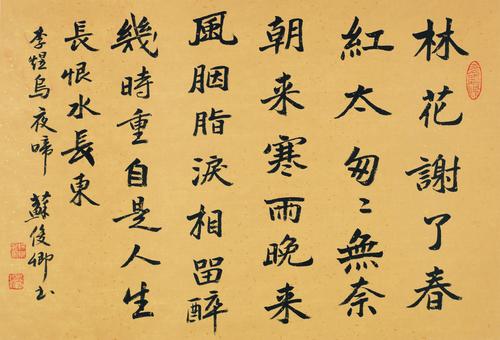 林花謝了春
紅太匆〻無奈
朝来寒雨晚来
風胭脂淚相留醉
幾時重自是人生
長恨水長東
李煜烏夜啼 蘇俊卿书